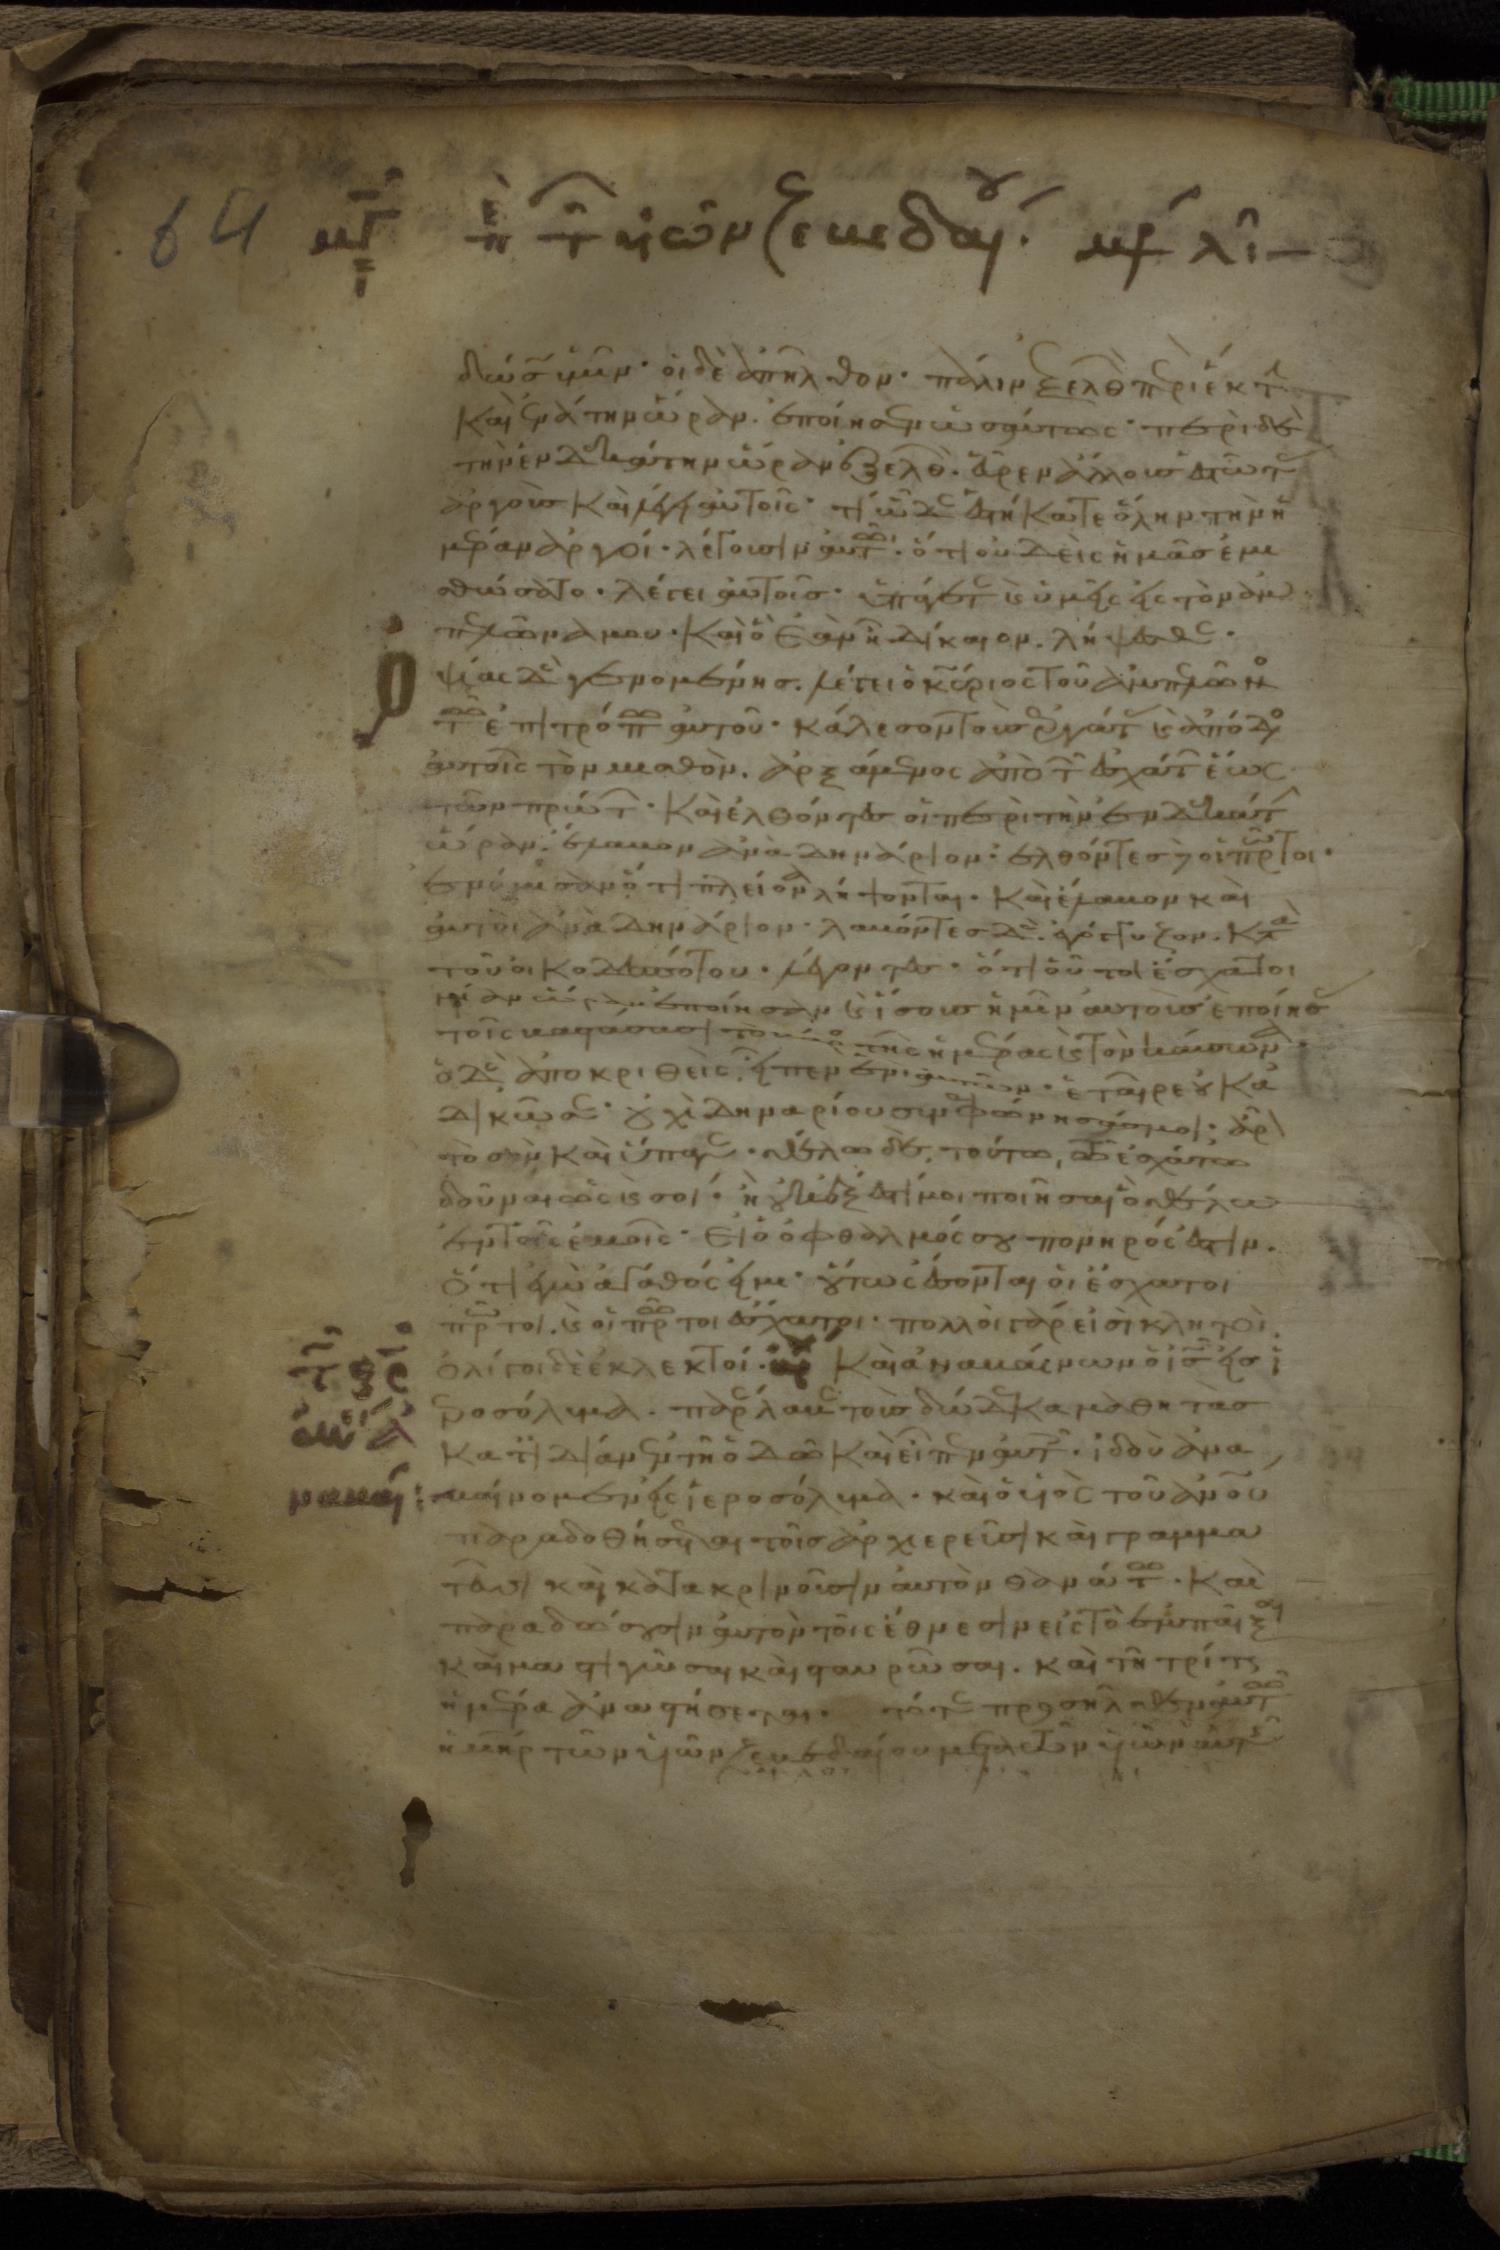 64
τῶν υἱῶν ζεβεδαί
δώσω ὑμῖν · οἱ δὲ ἀπῆλθον · πάλιν ἐξελθὼν περὶ ἕκτην
καὶ ἐννάτην ὥραν · ἐποίησεν ὡσαύτως · περὶ δὲ
τὴν ἑνδεκάτην ὥραν ἐξελθὼν · εὗρεν ἄλλους ἑστῶτας
ἀργοὺς καὶ λέγει αὐτοῖς · τί ὧδε ἑστήκατε ὅλην τὴν ἡ
μέραν ἀργοί · λέγουσιν αὐτῷ · ὅτι οὐδεὶς ἡμᾶς ἐμι
σθώσατο · λέγει αὐτοῖς · ὑπάγετε καὶ ὑμεῖς εἰς τὸν ἀμ
πελῶνα μου · καὶ ὃ ἐὰν ᾖ δίκαιον · λήψεσθε ·
Ο
ψίας δὲ γενομένης · λέγει ὁ κύριος τοῦ ἀμπελῶνος
τῷ ἐπιτρόπῳ αὐτοῦ · κάλεσον τοὺς ἐργάτας καὶ ἀπόδος
αὐτοῖς τὸν μισθὸν · ἀρξάμενος ἀπὸ τῶν ἐσχάτων ἕως
τῶν πρώτων · καὶ ἐλθόντες οἱ περὶ τὴν ἑνδεκάτην
ὥραν · ἔλαβον ἀνὰ δηνάριον · ἐλθόντες δὲ οἱ πρῶτοι ·
ἐνόμισαν ὅτι πλείονα λήψονται · καὶ ἔλαβον καὶ
αὐτοὶ ἀνὰ δηνάριον · λαβόντες δὲ · ἐγόγγυζον · κατὰ
τοῦ οἰκοδεσπότου · λέγοντες · ὅτι οὗτοι ἔσχατοι
μίαν ὥραν ἐποίησαν καὶ ἴσους ἡμῖν αὐτοὺς ἐποίησας
τοῖς βαστάσασι τὸ βάρος τῆς ἡμέρας καὶ τὸν καύσωνα ·
ὁ δὲ ἀποκριθεὶς · εἶπεν ἑνὶ αὐτῶν · ἑταῖρε οὐκ ἀ
δικῶ σε · οὐχὶ δηναρίου συνεφώνησάς μοι · ἆρον
τὸ σὸν καὶ ὕπαγε · θέλω δὲ τούτῳ τῷ ἐσχάτῳ
δοῦναι ὡς καὶ σοί · ἢ οὐκ ἔξεστί μοι ποιῆσαι ὃ θέλω
ἐν τοῖς ἐμοῖς · εἰ ὁ ὀφθαλμός σου πονηρός ἐστιν ·
ὅτι ἐγὼ ἀγαθός εἰμι · οὕτως ἔσονται οἱ ἔσχατοι
πρῶτοι · καὶ οἱ πρῶτοι ἔσχατοι · πολλοὶ γάρ εἰσι κλητοὶ
ὀλίγοι δὲ ἐκλεκτοί · καὶ ἀναβαίνων ὁ ισ εἰς ἱε
ροσόλυμα · παρέλαβε τοὺς δώδεκα μαθητὰς
κατ ἰδίαν ἐν τῇ ὁδῷ καὶ εἶπεν αὐτοῖς · ἰδοὺ ἀνα
βαίνομεν εἰς ἱεροσόλυμα · καὶ ὁ υἱὸς τοῦ ἀνου
παραδοθήσεται τοῖς ἀρχιερεῦσι καὶ γραμμα
τεῦσι καὶ κατακρινοῦσιν αὐτὸν θανάτῳ · καὶ
παραδώσουσιν αὐτὸν τοῖς ἔθνεσιν εἰς τὸ ἐμπαῖξαι
καὶ μαστιγῶσαι καὶ σταυρῶσαι · καὶ τῇ τρίτῃ
ἡμέρα ἀναστήσεται · τότε προσῆλθεν αὐτῷ
ἡ μηρ τῶν υἱῶν ζεβεδαίου μετὰ τῶν υἱῶν αὐτῆς